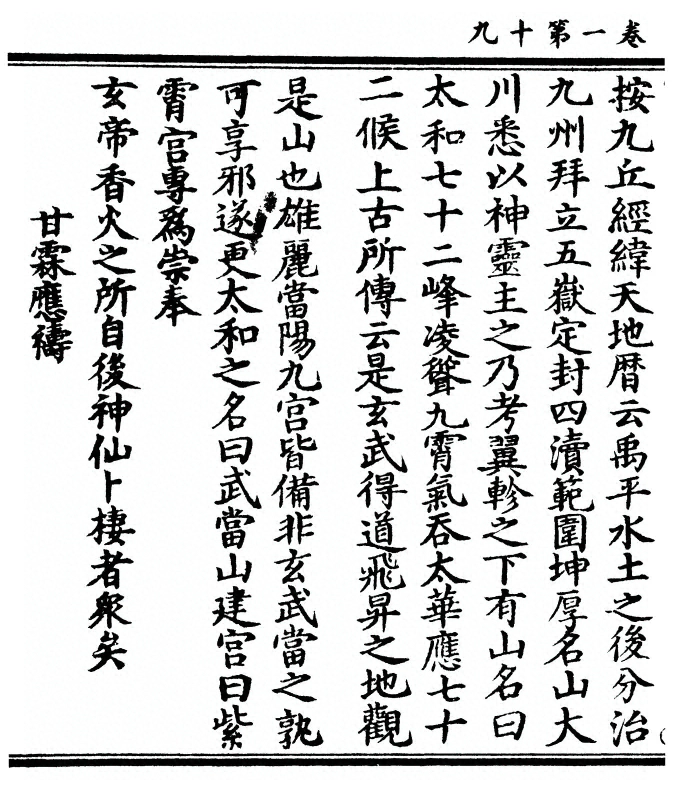 卷一第十九
按九丘經緯天地曆云禹平水土之後分治
九州拜立五嶽定封四瀆範圍坤厚名山大
川悉以神靈主之乃考翼軫之下有山名曰
太和七十二峰凌聳九霄氣吞太華應七十
二候上古所傳云是玄武得道飛昇之地觀
是山也雄麗當陽九宮皆備非玄武當之孰
可享邪遂更太和之名曰武當山建宮曰紫
霄宮專爲崇奉
玄帝香火之所自後神仙卜棲者衆矣
甘霖應禱